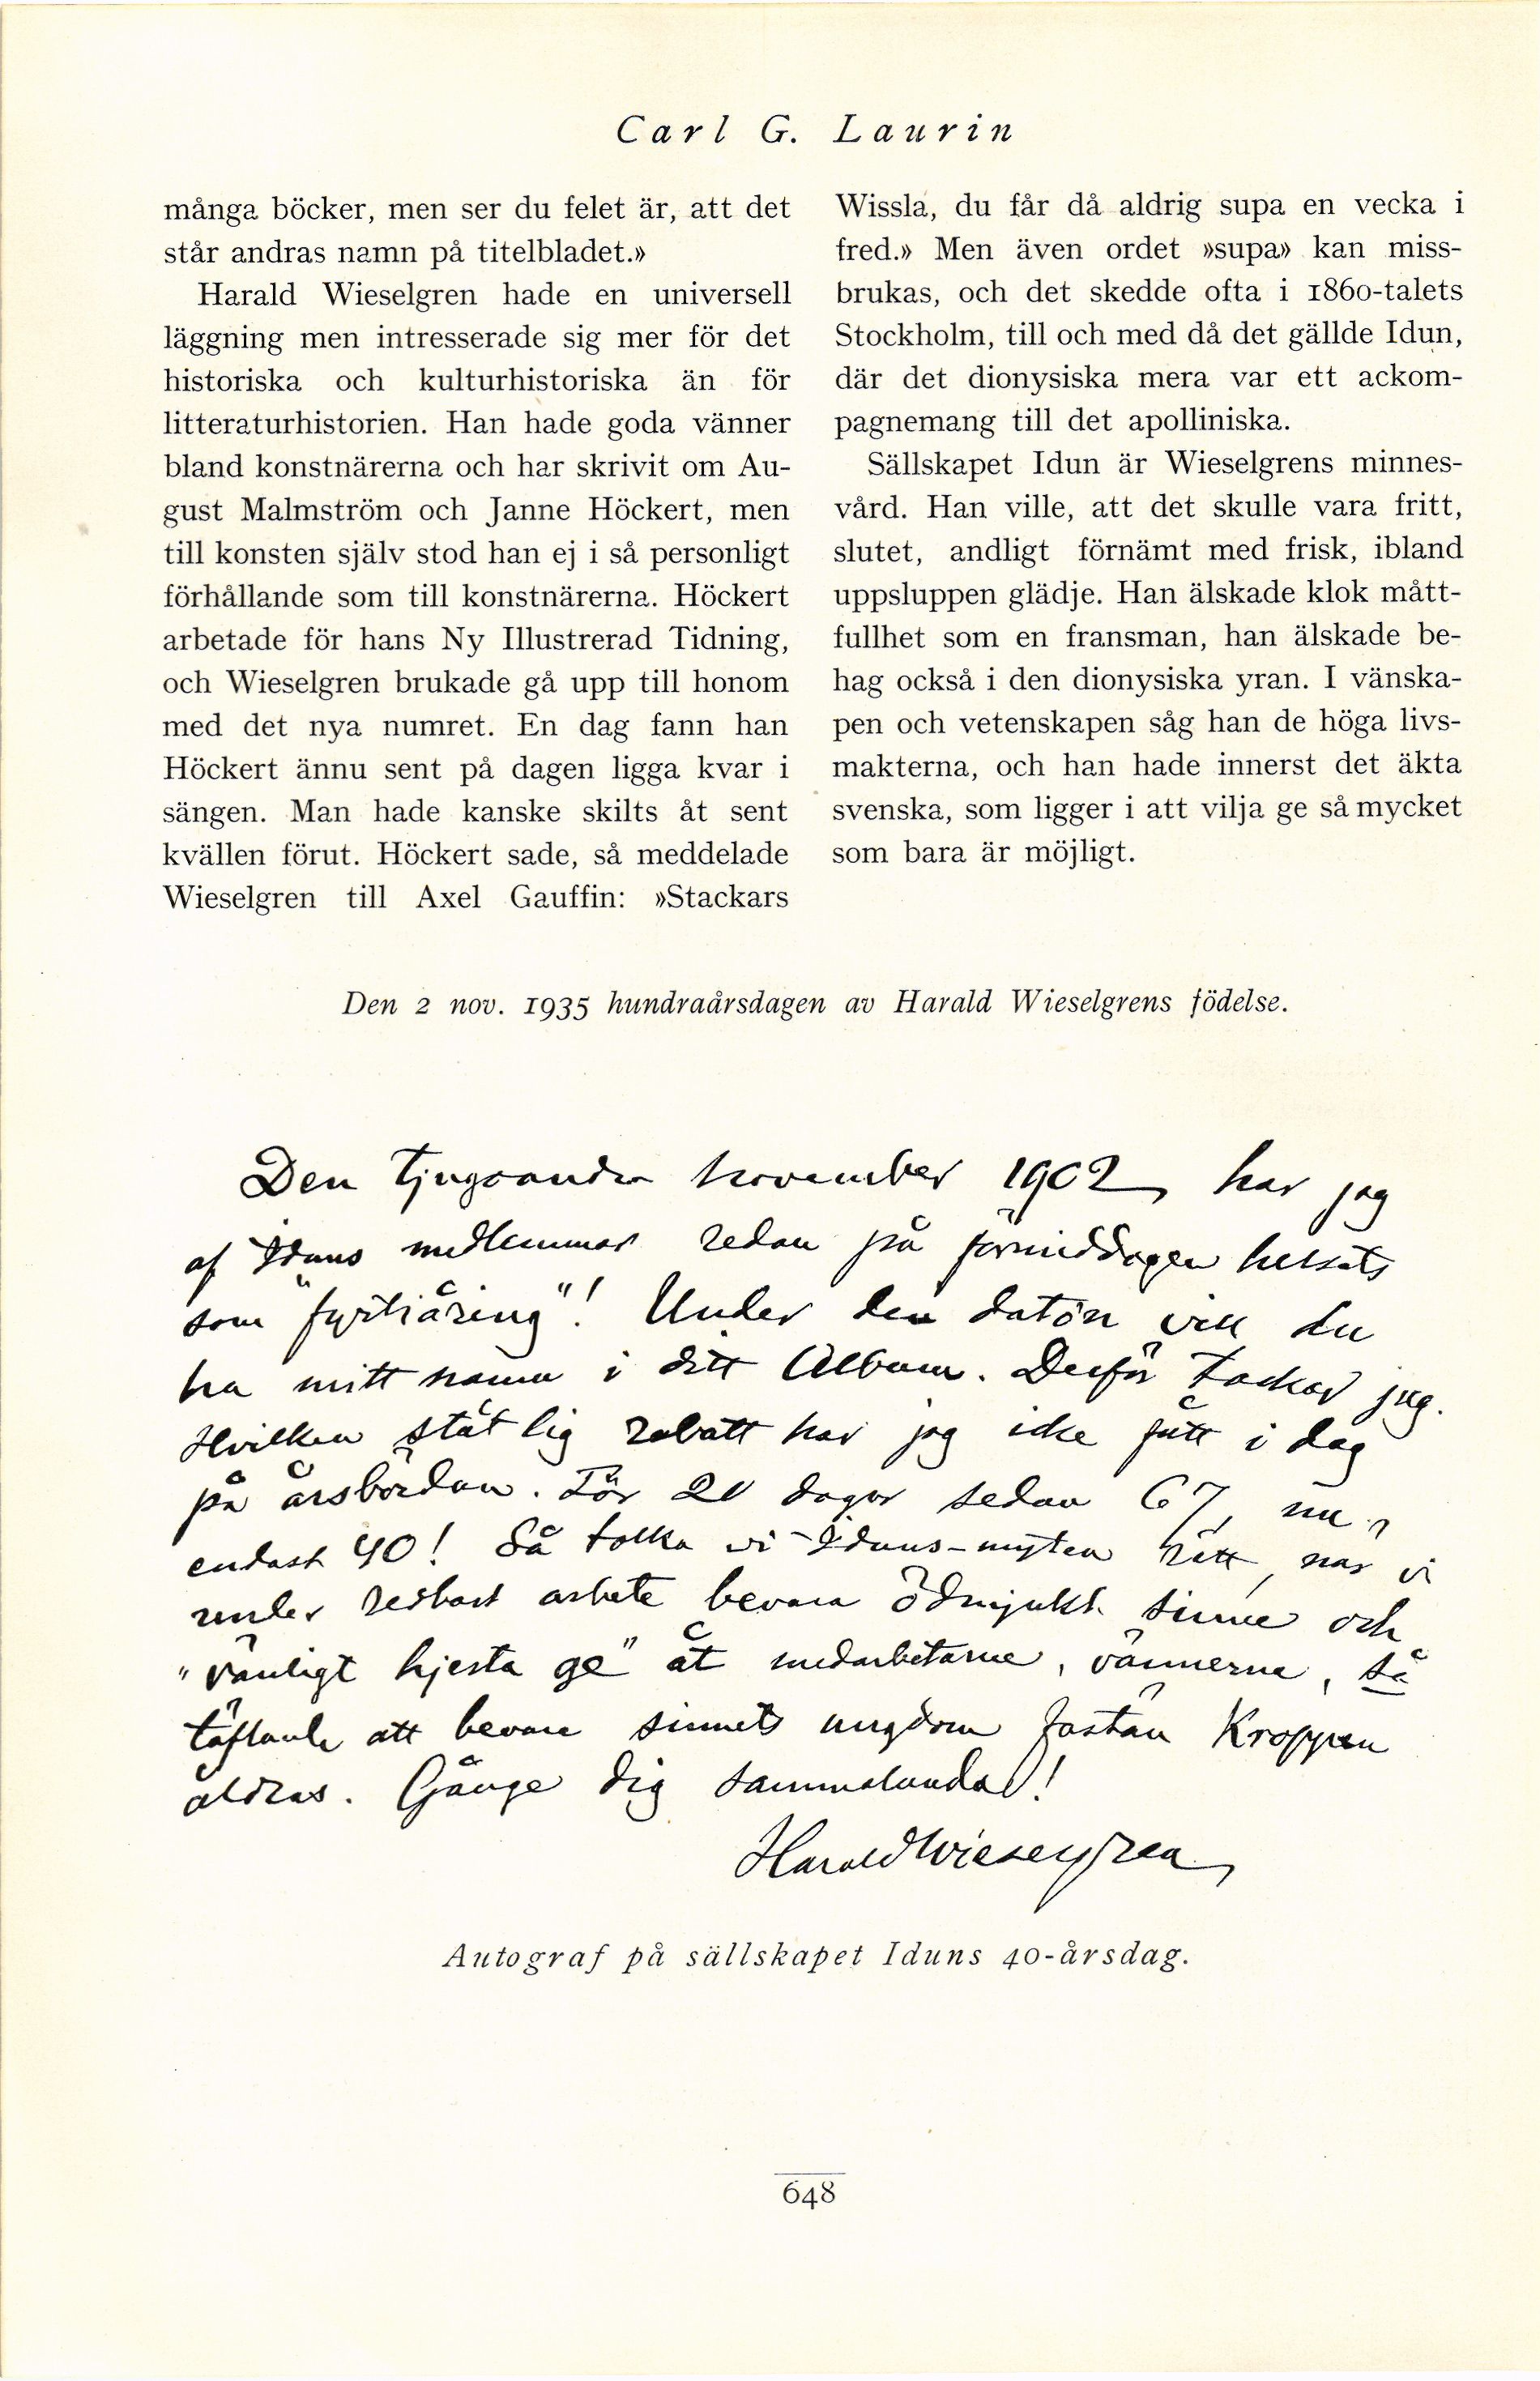 Carl G. Laurin
många böcker, men ser du felet är, att det
står andras namn på titelbladet.»
Harald Wieselgren hade en universell
läggning men intresserade sig mer för det
historiska och kulturhistoriska än för
litteraturhistorien. Han hade goda vänner
bland konstnärerna och har skrivit om Au-
gust Malmström och Janne Höckert, men
till konsten själv stod han ej i så personligt
förhållande som till konstnärerna. Höckert
arbetade för hans Ny Illustrerad Tidning,
och Wieselgren brukade gå upp till honom
med det nya numret. En dag fann han
Höckert ännu sent på dagen ligga kvar i
sängen. Man hade kanske skilts åt sent
kvällen förut. Höckert sade, så meddelade
Wieselgren till Axel Gauffin: »Stackars
Wissla, du får då aldrig supa en vecka i
fred.» Men även ordet »supa» kan miss-
brukas, och det skedde ofta i 1860-talets
Stockholm, till och med då det gällde Idun,
där det dionysiska mera var ett ackom-
pagnemang till det apolliniska.
Sällskapet Idun är Wieselgrens minnes-
vård. Han ville, att det skulle vara fritt,
slutet, andligt förnämt med frisk, ibland
uppsluppen glädje. Han älskade klok mått-
fullhet som en fransman, han älskade be-
hag också i den dionysiska yran. I vänska-
pen och vetenskapen såg han de höga livs-
makterna, och han hade innerst det äkta
svenska, som ligger i att vilja ge så mycket
som bara är möjligt.
Den 2 nov. 1935 hundraårsdagen av Harald Wieselgrens födelse.
Den tjugoandra november 1902, har jag
af Iduns medlemmar redan på förmiddagen helsats
som "fyrtiåring"! Under den datön vill du
ha mitt namn i ditt Album. Derför tackar jag.
Hvilken ståtlig rabatt har jag icke fått i dag
på årsbördan. För 20 dagar sedan 67, nu
endast 40! Så tolka vi Iduns-myten rätt, när vi
under redbart arbete bevara ödmjukt sinne och
"vänligt hjerta ge" åt medarbetarne, vännerne, så
täflande att bevara sinnets ungdom fastän Kroppen
åldras. Gånge dig sammalunda!
Harald Wieselgren
Autograf på sällskapet Iduns 40-årsdag.
648